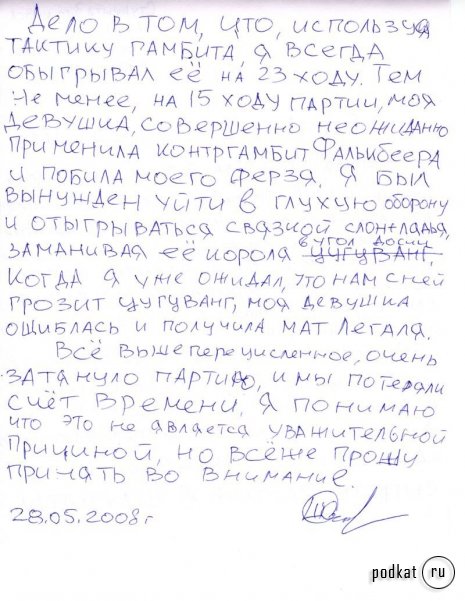 Дело в том, что, используя
тактику гамбита, я всегда
обыгрывал её на 23 ходу. Тем
не менее, на 15 ходу партии, моя
девушка, совершенно неожиданно
применила контргамбит Фалькбеера
и побила моего ферзя. Я был
вынужден уйти в глухую оборону
и отыгрываться связкой слон+ладья,
в угол доски
заманивая её короля цугуванг.
Когда я уже ожидал, что нам с ней
грозит цугуванг, моя девушка
ошиблась и получила мат Легаля.
Всё вышеперечисленное, очень
затянуло партию, и мы потеряли
счёт времени. Я понимаю
что это не является уважительной
причиной, но всё же прошу
принять во внимание.
28.05.2008г
podkat ru